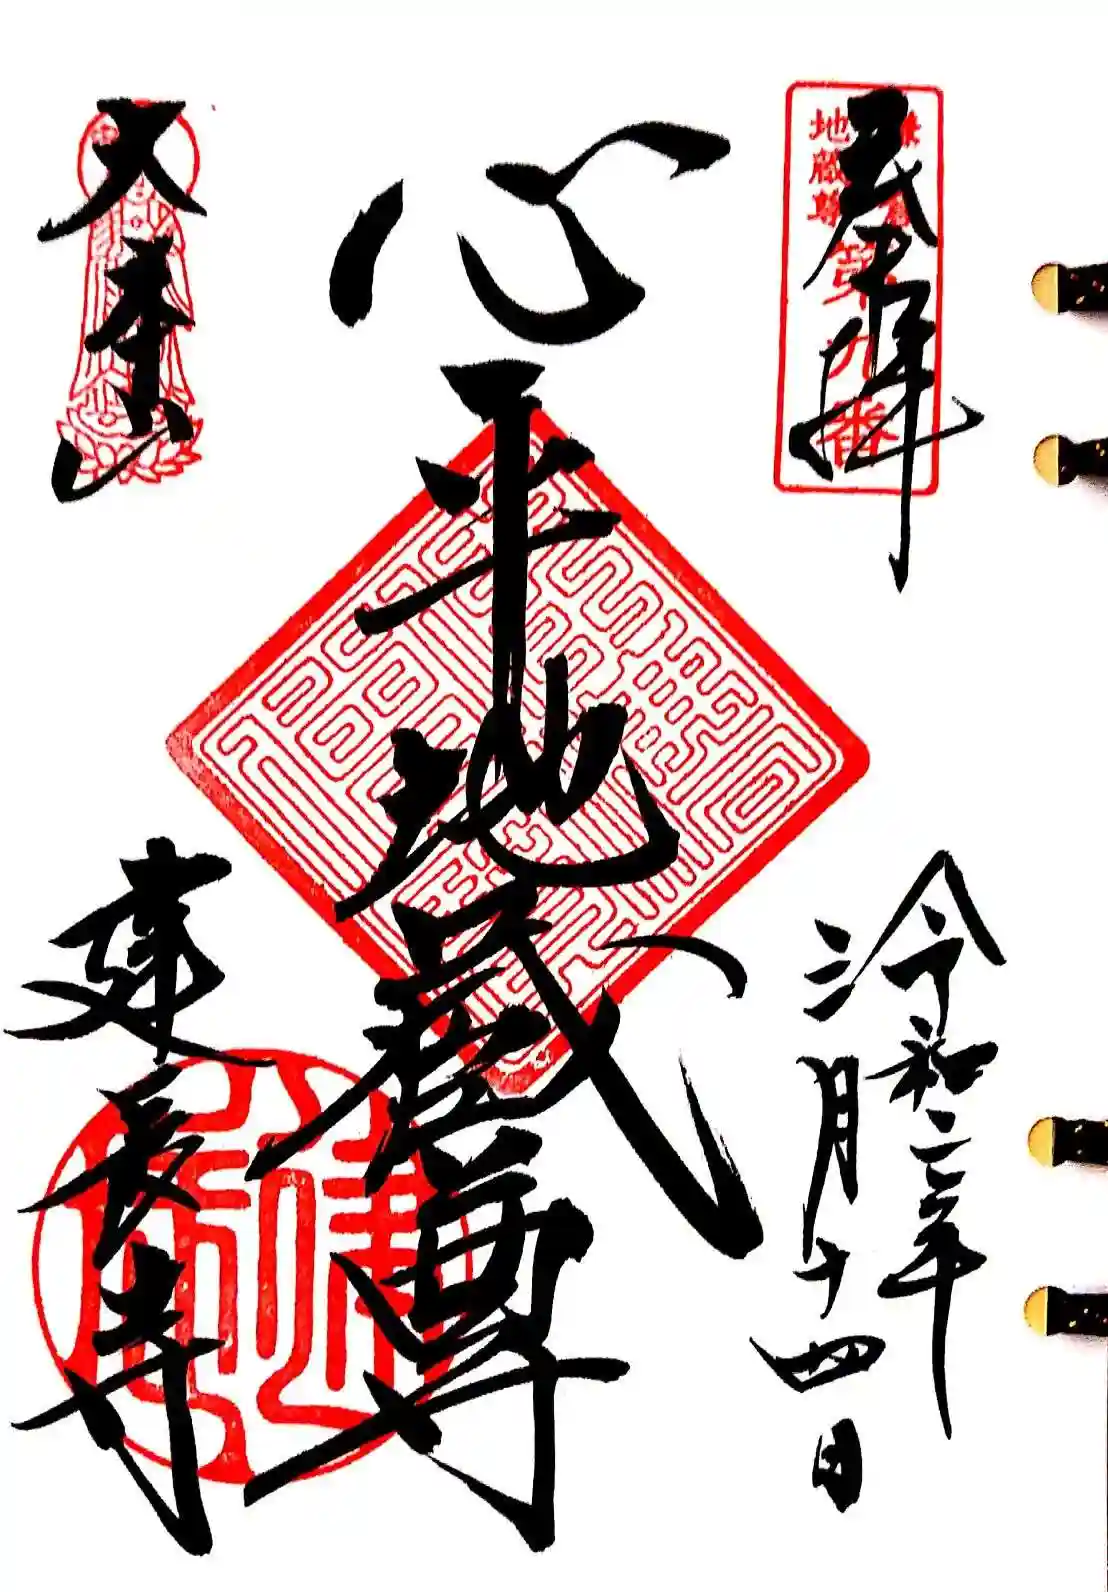 奉拝
地蔵尊
第九番
令和二年
三月十四日
心平地蔵尊
大本山
建長寺